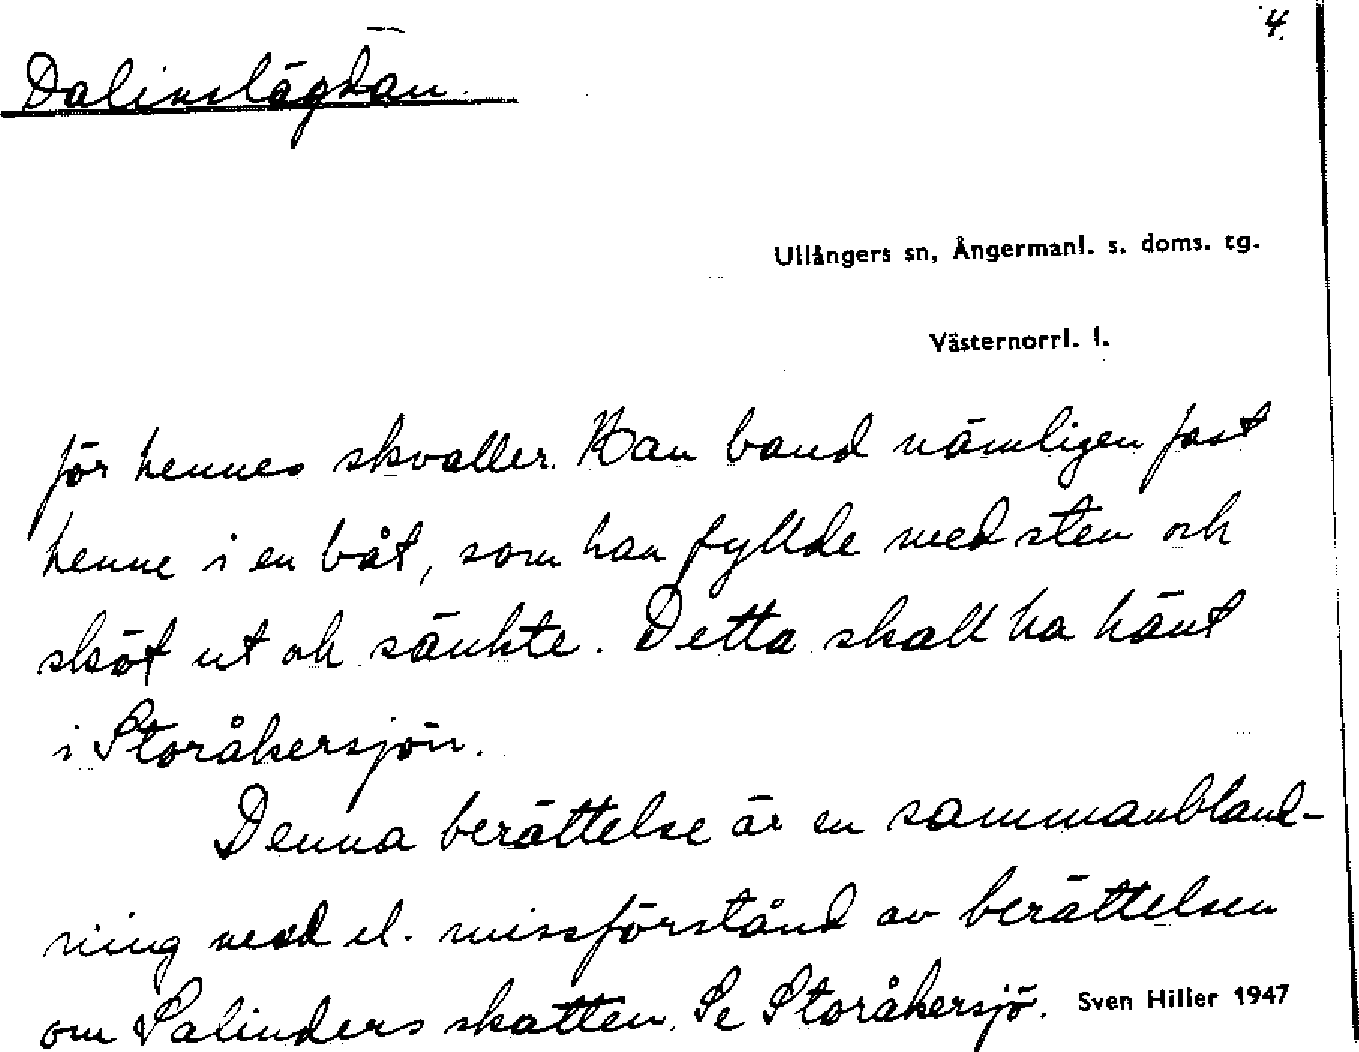 4.
Dalinslägdan.
Ullångers sn, Ångermanl. s. doms. tg.
Västernorrl. l.
för hennes skvaller. Han band nämligen fast
henne i en båt, som han fyllde med sten och
sköt ut och sänkte. Detta skall ha hänt
i Storåkersjön.
Denna berättelse är en sammanbland-
ning med el. missförstånd av berättelsen
om Salinders skatten. Se Storåkersjö.
Sven Hillier 1947